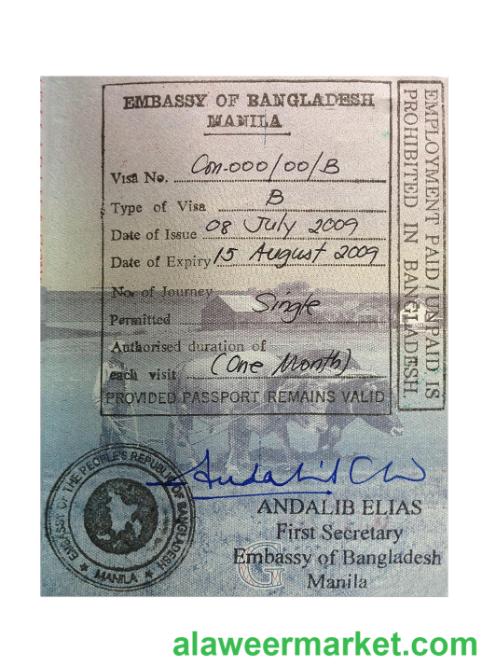 EMBASSY OF BANGLADESH
MANILA
Visa No. Con-000/00/B
Type of Visa B
Date of Issue 08 July 2009
Date of Expiry 15 August 2009
No. of Journey
Permitted Single
Authorised duration of
each visit (One Month)
PROVIDED PASSPORT REMAINS VALID
EMPLOYMENT PAID/UNPAID IS
PROHIBITED IN BANGLADESH.
EMBASSY OF THE PEOPLE'S REPUBLIC OF BANGLADESH
★ MANILA ★
ANDALIB ELIAS
First Secretary
Embassy of Bangladesh
Manila
G
alaweermarket.com